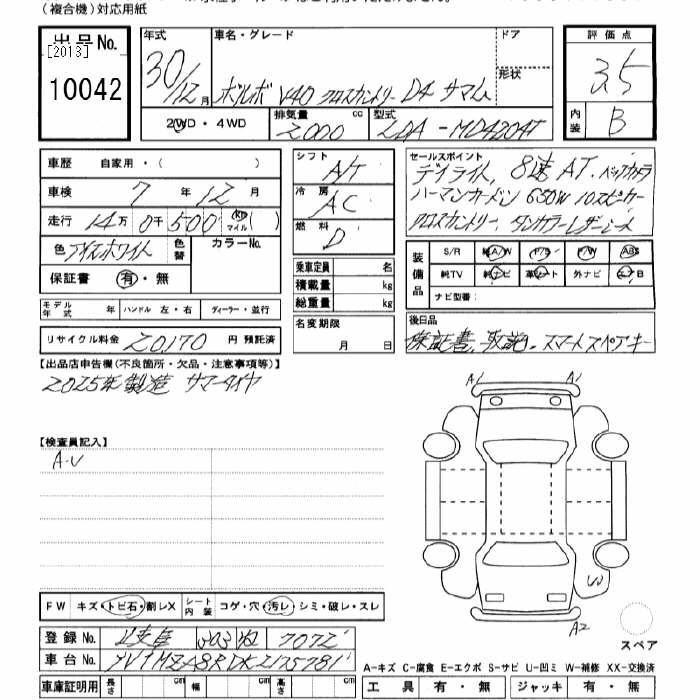 (複合機)対応用紙
出品No.
[2013]
10042
年式 30/12月
車名・グレード ボルボ V40 クロスカントリー D4 サマム
ドア
形状
2WD・4WD
排気量 2000 cc
型式 LDA-MD4204T
評価点 3.5
内装 B
車歴 自家用・( )
車検 7年 12月
走行 14万 0千 500 (km マイル)( )
色 アイスホワイト
色替
カラーNo.
保証書 有・無
モデル年式 年
ハンドル 左・右
ディーラー・並行
リサイクル料金 20,170 円 預託済
シフト A/T
冷房 AC
燃料 D
乗車定員 名
積載量 kg
総重量 kg
名変期限 月 日
セールスポイント
デイライト, 8速AT. バックカメラ
ハーマンカードン 650W 10スピーカー
クロスカントリー. タンカラーレザーシート
装備品
S/R 純A/W P/S P/W ABS
純TV 純ナビ 革シート 外ナビ エアB
ナビ型番:
後日品
保証書. 取説. スマートスペアキー
【出品店申告欄(不良箇所・欠品・注意事項等)】
2025年製造 サマータイヤ
【検査員記入】
A.U
A1 A1
W
A2
スペア
FW キズ・トビ石・割レX
シート内装 コゲ・穴・汚レ・シミ・破レ・スレ
登録No. 岐阜 303 7072
車台No. YV1MZA8RDK2175781
車庫証明用 長さ cm 幅 cm 高さ cm
A-キズ C-腐食 E-エクボ S-サビ U-凹ミ W-補修 XX-交換済
工具 有・無 ジャッキ 有・無